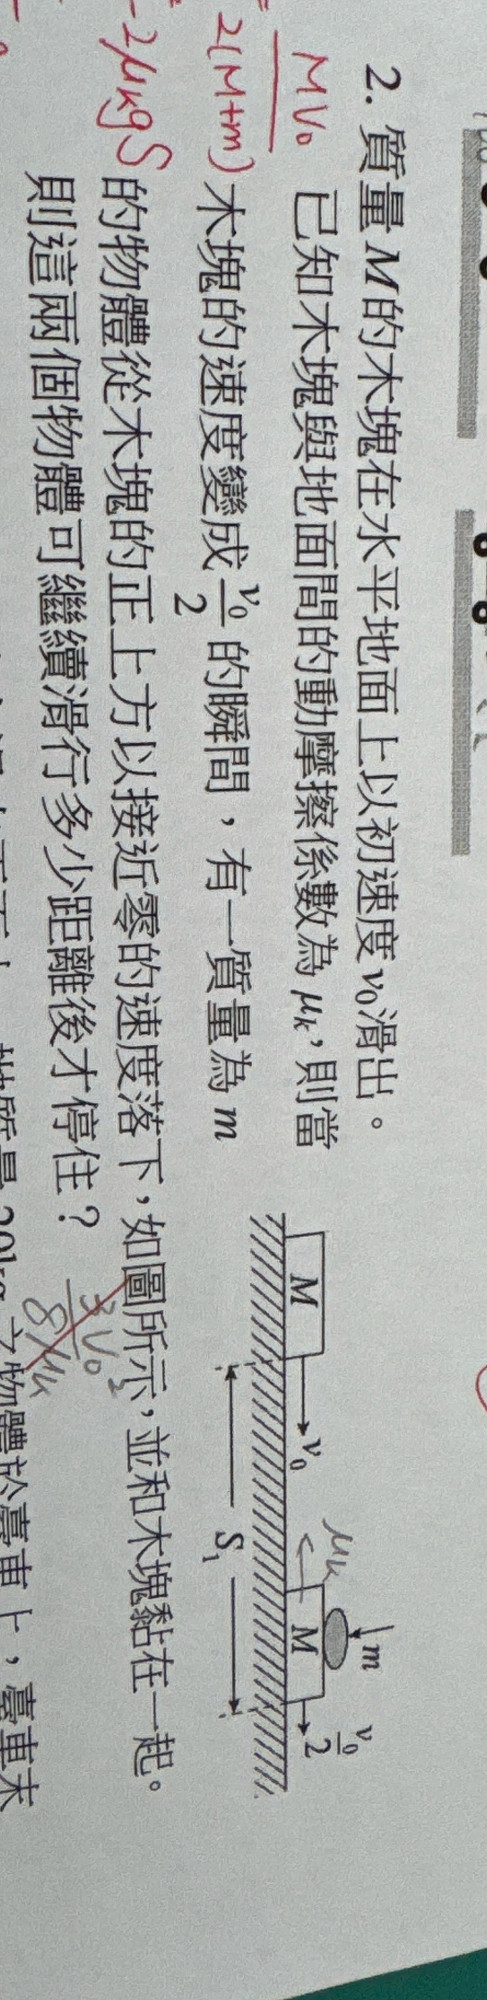 2. 質量 M 的木塊在水平地面上以初速度 v₀ 滑出。
已知木塊與地面間的動摩擦係數為 μₖ,則當
木塊的速度變成 v₀/2 的瞬間,有一質量為 m
的物體從木塊的正上方以接近零的速度落下,如圖所示,並和木塊黏在一起。
則這兩個物體可繼續滑行多少距離後才停住?
MV₀
2(M+m)
-2μₖgS
M
v₀
S₁
μₖ
m
M
v₀/2
3V₀²
8μₖ